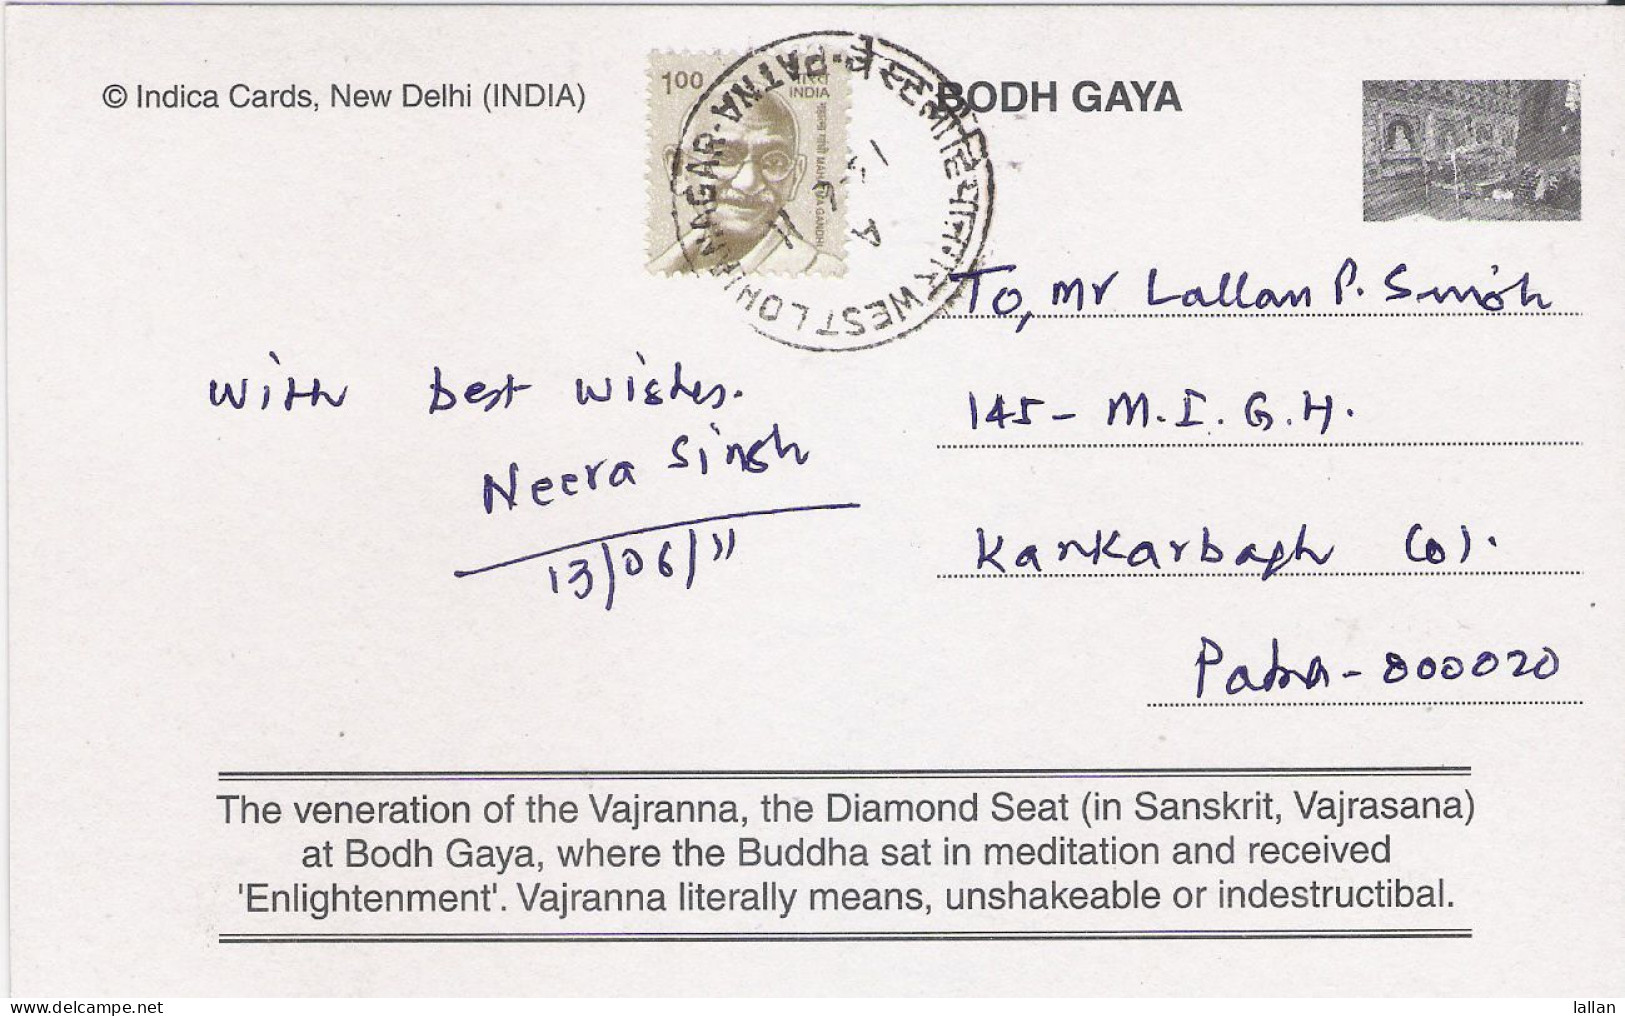 © Indica Cards, New Delhi (INDIA)
100
भारत
INDIA
महात्मा गांधी MAHATMA GANDHI
WEST LOHIANAGAR-PATNA
A
13
11
BODH GAYA
To, Mr Lallan P. Singh
145- M.I.G.H.
Kankarbagh Col.
Patna-800020
With best wishes.
Neera Singh
13/06/11
The veneration of the Vajranna, the Diamond Seat (in Sanskrit, Vajrasana)
at Bodh Gaya, where the Buddha sat in meditation and received
'Enlightenment'. Vajranna literally means, unshakeable or indestructibal.
www.delcampe.net
lallan